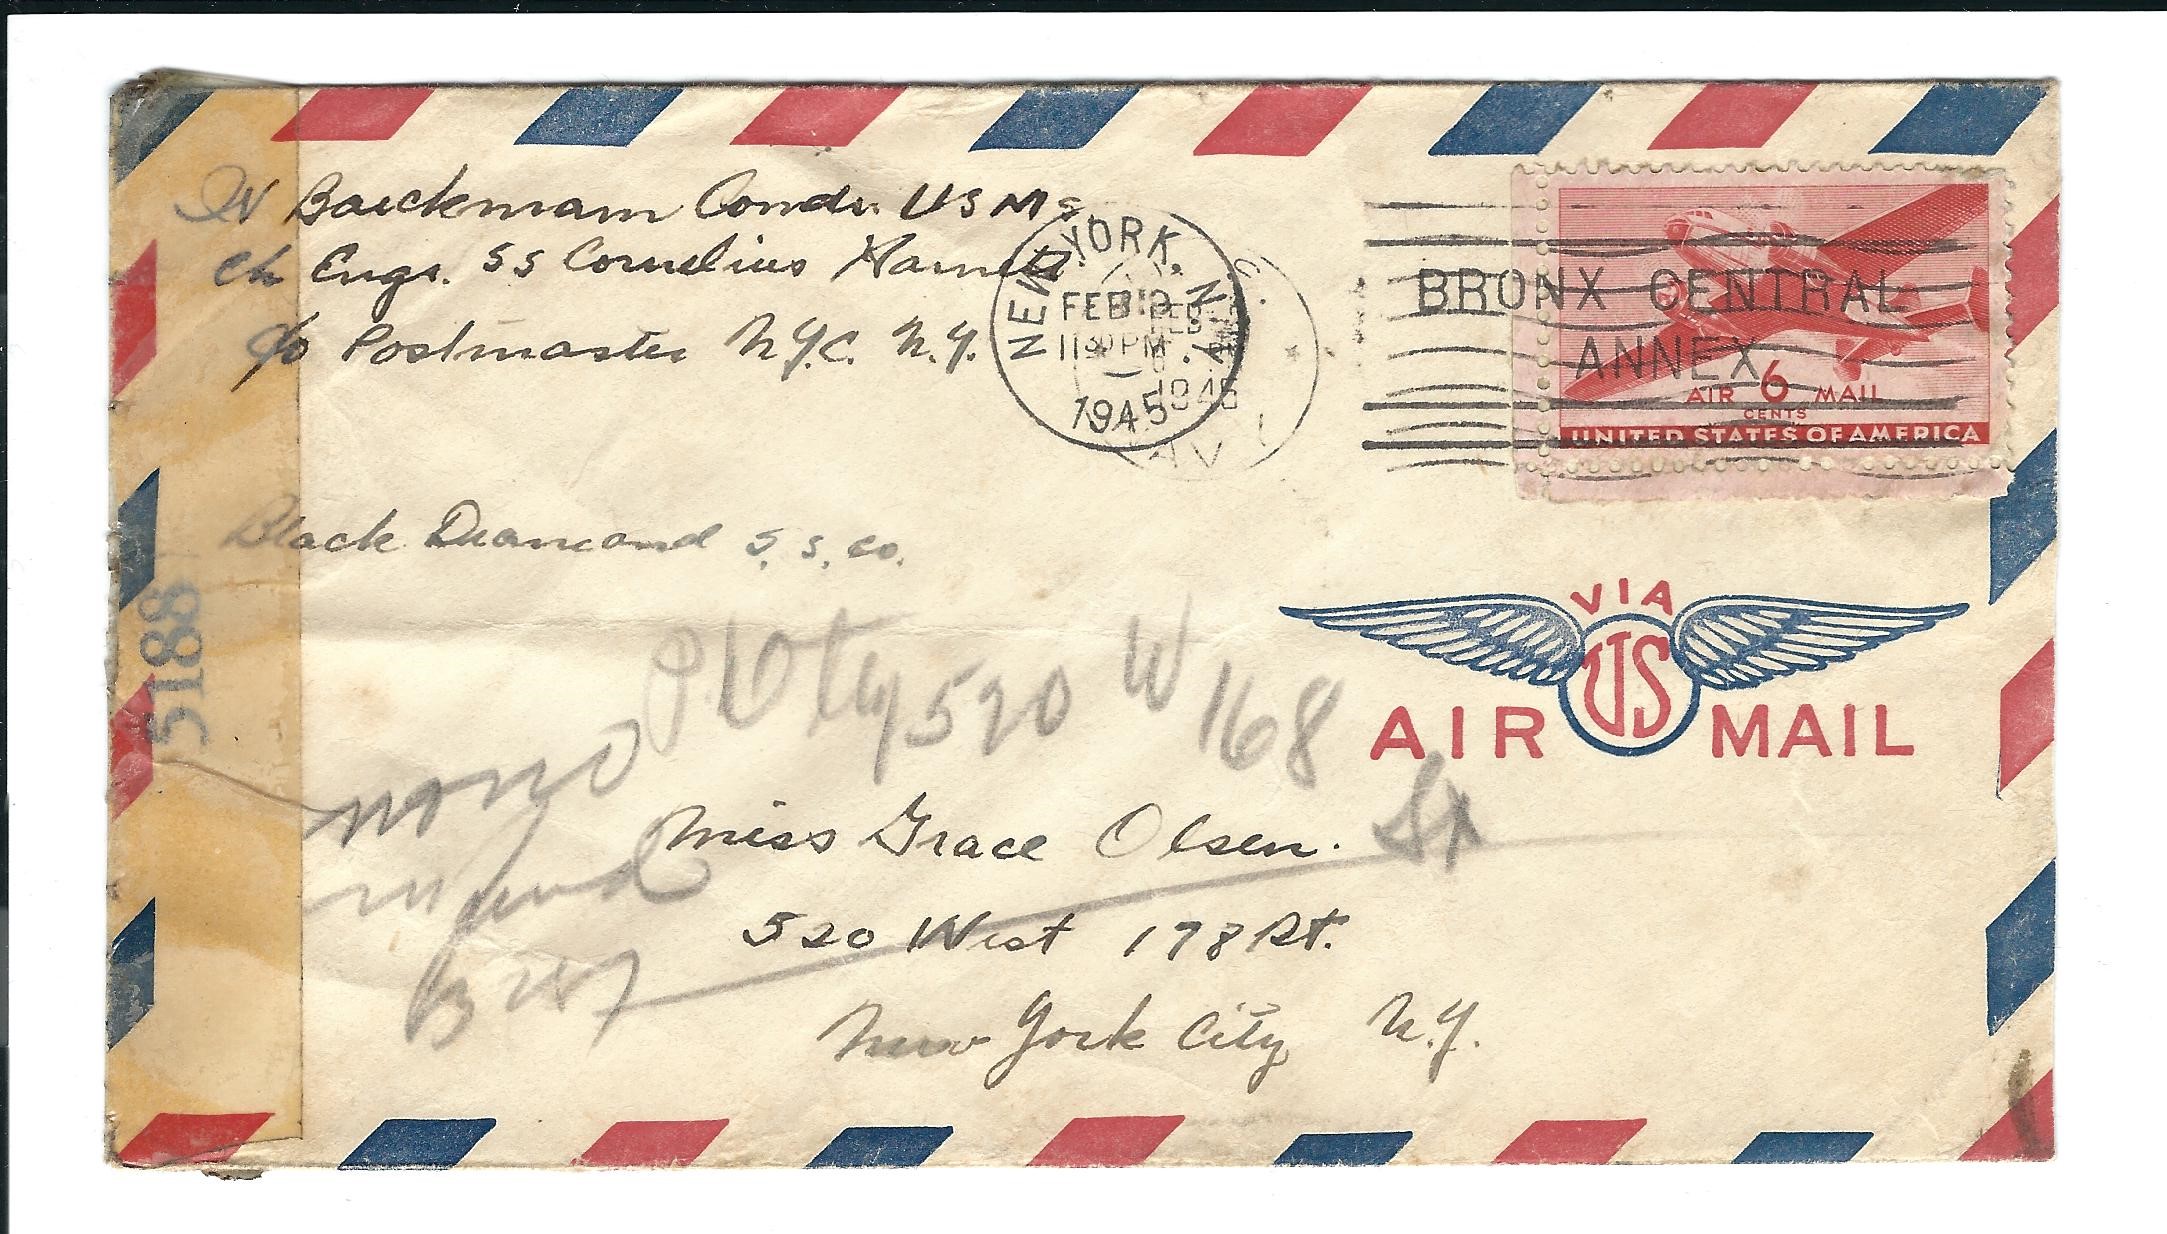 W Baeckmann Comdr. USMS
Ch Engr. SS Cornelius Harnett
c/o Postmaster N.Y.C. N.Y.
NEW YORK, N.Y.
FEB 19
11 30 PM
1945
BRONX CENTRAL
ANNEX
AIR 6 MAIL
CENTS
UNITED STATES OF AMERICA
Black Diamond S.S. Co.
5188
VIA
US
AIR MAIL
520 W 168
St
Miss Grace Olsen.
520 West 178 St.
New York City N.Y.